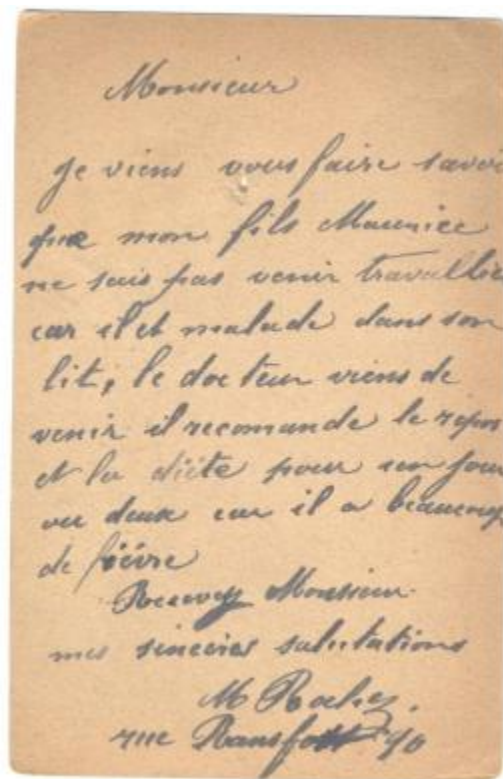 Monsieur
je viens vous faire savoir
que mon fils Maurice
ne sais pas venir travallier
car il et malade dans son
lit, le docteur viens de
venir il recomande le repos
et la diète pour un jour
ou deux car il a beaucoup
de fièvre
Recevez Monsieur
mes sincères salutations
M Rochez.
rue Ransfort